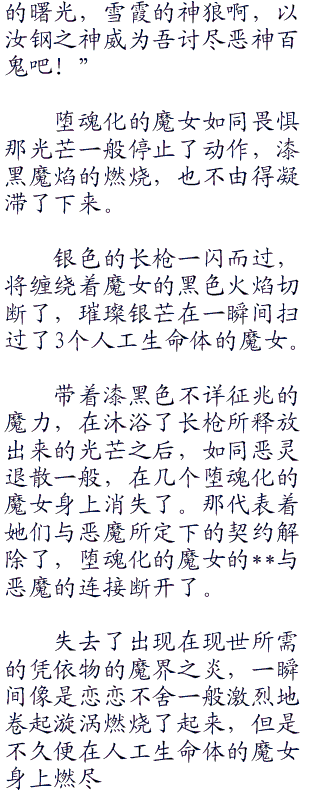 的曙光，雪霞的神狼啊，以
汝钢之神威为吾讨尽恶神百
鬼吧！”
堕魂化的魔女如同畏惧
那光芒一般停止了动作，漆
黑魔焰的燃烧，也不由得凝
滞了下来。
银色的长枪一闪而过，
将缠绕着魔女的黑色火焰切
断了，璀璨银芒在一瞬间扫
过了3个人工生命体的魔女。
带着漆黑色不详征兆的
魔力，在沐浴了长枪所释放
出来的光芒之后，如同恶灵
退散一般，在几个堕魂化的
魔女身上消失了。那代表着
她们与恶魔所定下的契约解
除了，堕魂化的魔女的**与
恶魔的连接断开了。
失去了出现在现世所需
的凭依物的魔界之炎，一瞬
间像是恋恋不舍一般激烈地
卷起漩涡燃烧了起来，但是
不久便在人工生命体的魔女
身上燃尽